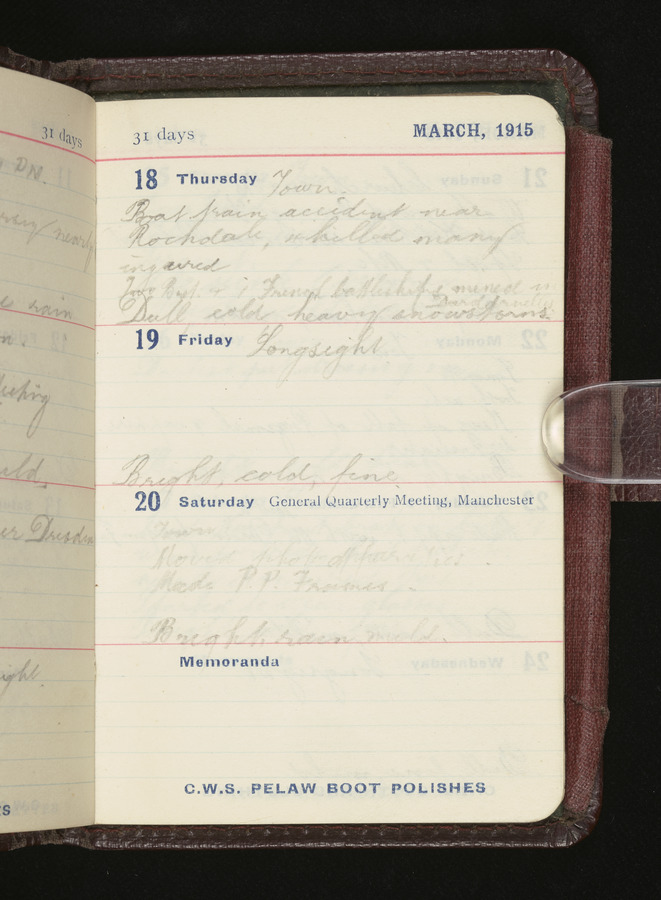 31 days
31 days MARCH, 1915
18 Thursday Town.
Boat train accident near
Rochdale, killed many
ingured
Two Brit. & 1 French battleships mined in
Dardanelles
Dull cold heavy snowstorms.
19 Friday Longsight
Bright, cold, fine
20 Saturday General Quarterly Meeting, Manchester
Town
Moved photo apparatus.
Made P.P. Frames.
Bright, rain mild.
Memoranda
C.W.S. PELAW BOOT POLISHES